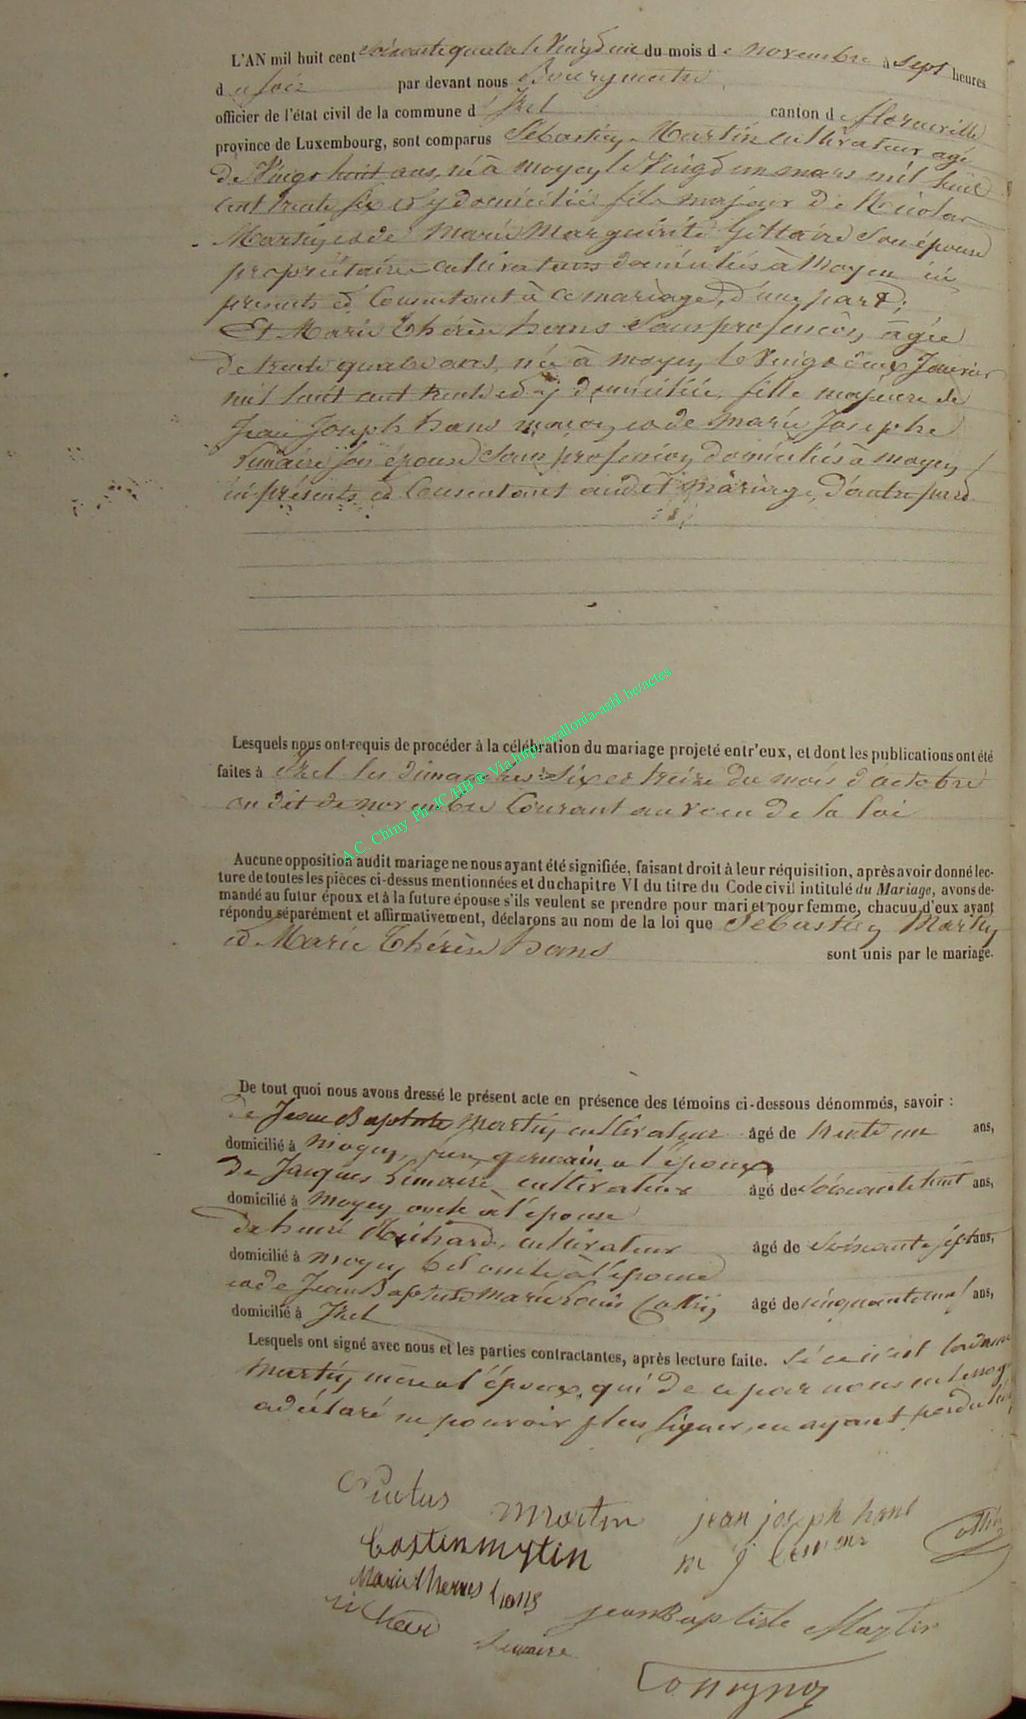 L'AN mil huit cent soixante quatre le Vingt un du mois de novembre à sept heures
du soir par devant nous Bourgmestre
officier de l'état civil de la commune d'Izel canton de florenville
province de Luxembourg, sont comparus Sébastien Martin cultivateur agé
de Vingt huit ans, né à moyen le Vingt un mars mil huit
cent trente six et y domicilié fils majeur de Nicolas
Martin et de Marie Marguerite Gillaire Son épouse
propriétaires cultivateurs domiciliés à Moyen ici
presents et Consentant à ce mariage, d'une part;
Et Marie Thérèse hans Sans profession, agée
de trente quatre ans, née à moyen le Vingt deux Janvier
mil huit cent trente et y domiciliée, fille majeure de
Jean Joseph hans maçon et de Marie Josephe
Lemaire son épouse Sans profession, domiciliés à moyen
ici présents et Consentant audit mariage, d'autre part
Lesquels nous ont requis de procéder à la célébration du mariage projeté entr'eux, et dont les publications ont été
faites à Izel les dimanches Six et treize du mois
de novembre Courant au vœu de la loi
Aucune opposition audit mariage ne nous ayant été signifiée, faisant droit à leur réquisition, après avoir donné lec-
ture de toutes les pièces ci-dessus mentionnées et du chapitre VI du titre du Code civil intitulé du Mariage, avons de-
mandé au futur époux et à la future épouse s'ils veulent se prendre pour mari et pour femme, chacun d'eux ayant
répondu séparément et affirmativement, déclarons au nom de la loi que Sébastien Martin
et Marie Thérèse hans sont unis par le mariage.
De tout quoi nous avons dressé le présent acte en présence des témoins ci-dessous dénommés, savoir :
de Jean Baptiste Martin, cultivateur âgé de trente un ans,
domicilié à moyen, germain a l'époux
De Jacques Lemaire, cultivateur âgé de Soixante huit ans,
domicilié à moyen oncle à l'épouse
De henri Richard, cultivateur âgé de Soixante sept ans,
domicilié à moyen bel oncle à l'épouse
et de Jean Baptiste Marie Louis Collin âgé de cinquante neuf ans,
domicilié à Izel
Lesquels ont signé avec nous et les parties contractantes, après lecture faite. Si ce n'est
Martin mère a l'époux, qui de ce par nous
a déclaré ne pouvoir plus signer, en ayant perdu
Nicolas Martin jean joseph hans
bastin mrtin m j lemaire Collin
Marie therres hans
richard jean Baptiste Martin
Lemaire
A.C. Chiny Ph. JC/HB @ Via http://wallonia-asbl.be/actes